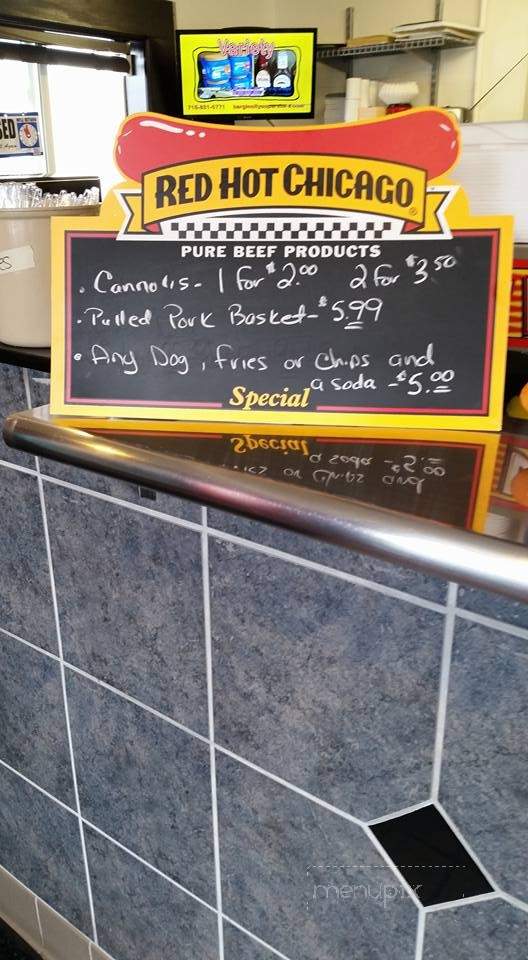 Variety
RED HOT CHICAGO
PURE BEEF PRODUCTS
. Cannolis - 1 for $2.00 2 for $3.50
. Pulled Pork Basket - $5.99
. Any Dog, fries or chips and
a soda - $5.00
Special
menupix